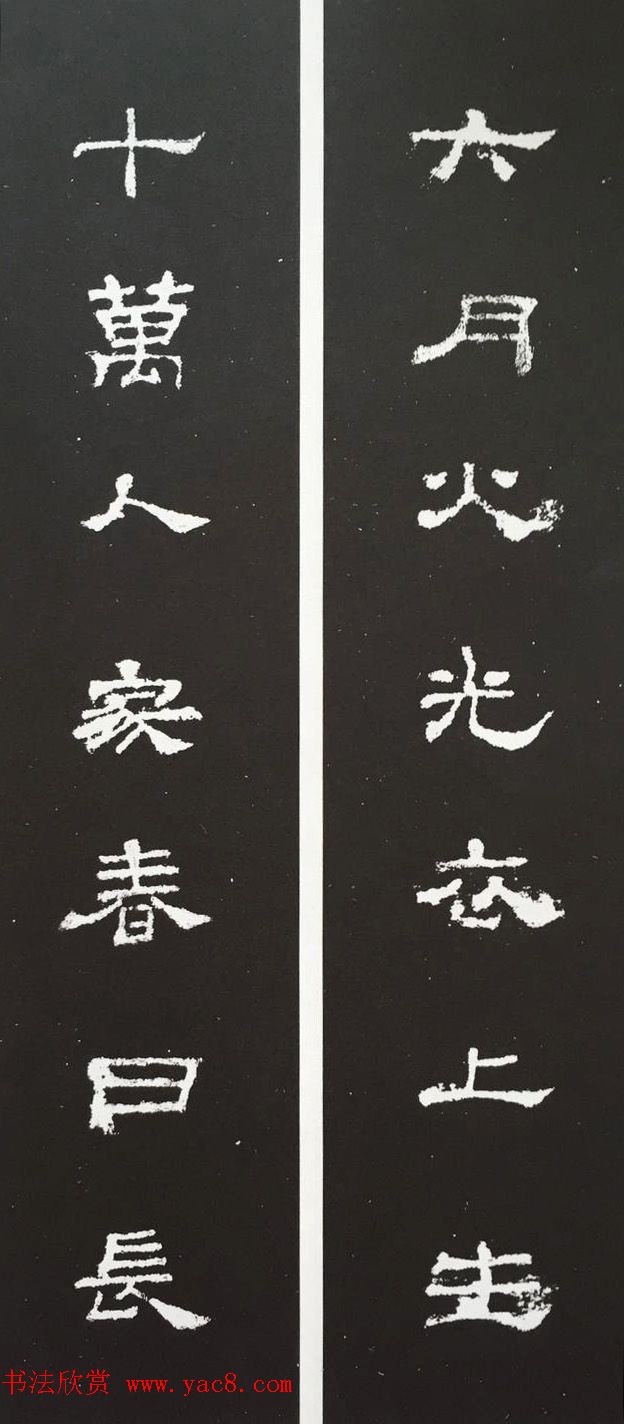 六月火光衣上生
十萬人家春日長
书法欣赏 www.yac8.com